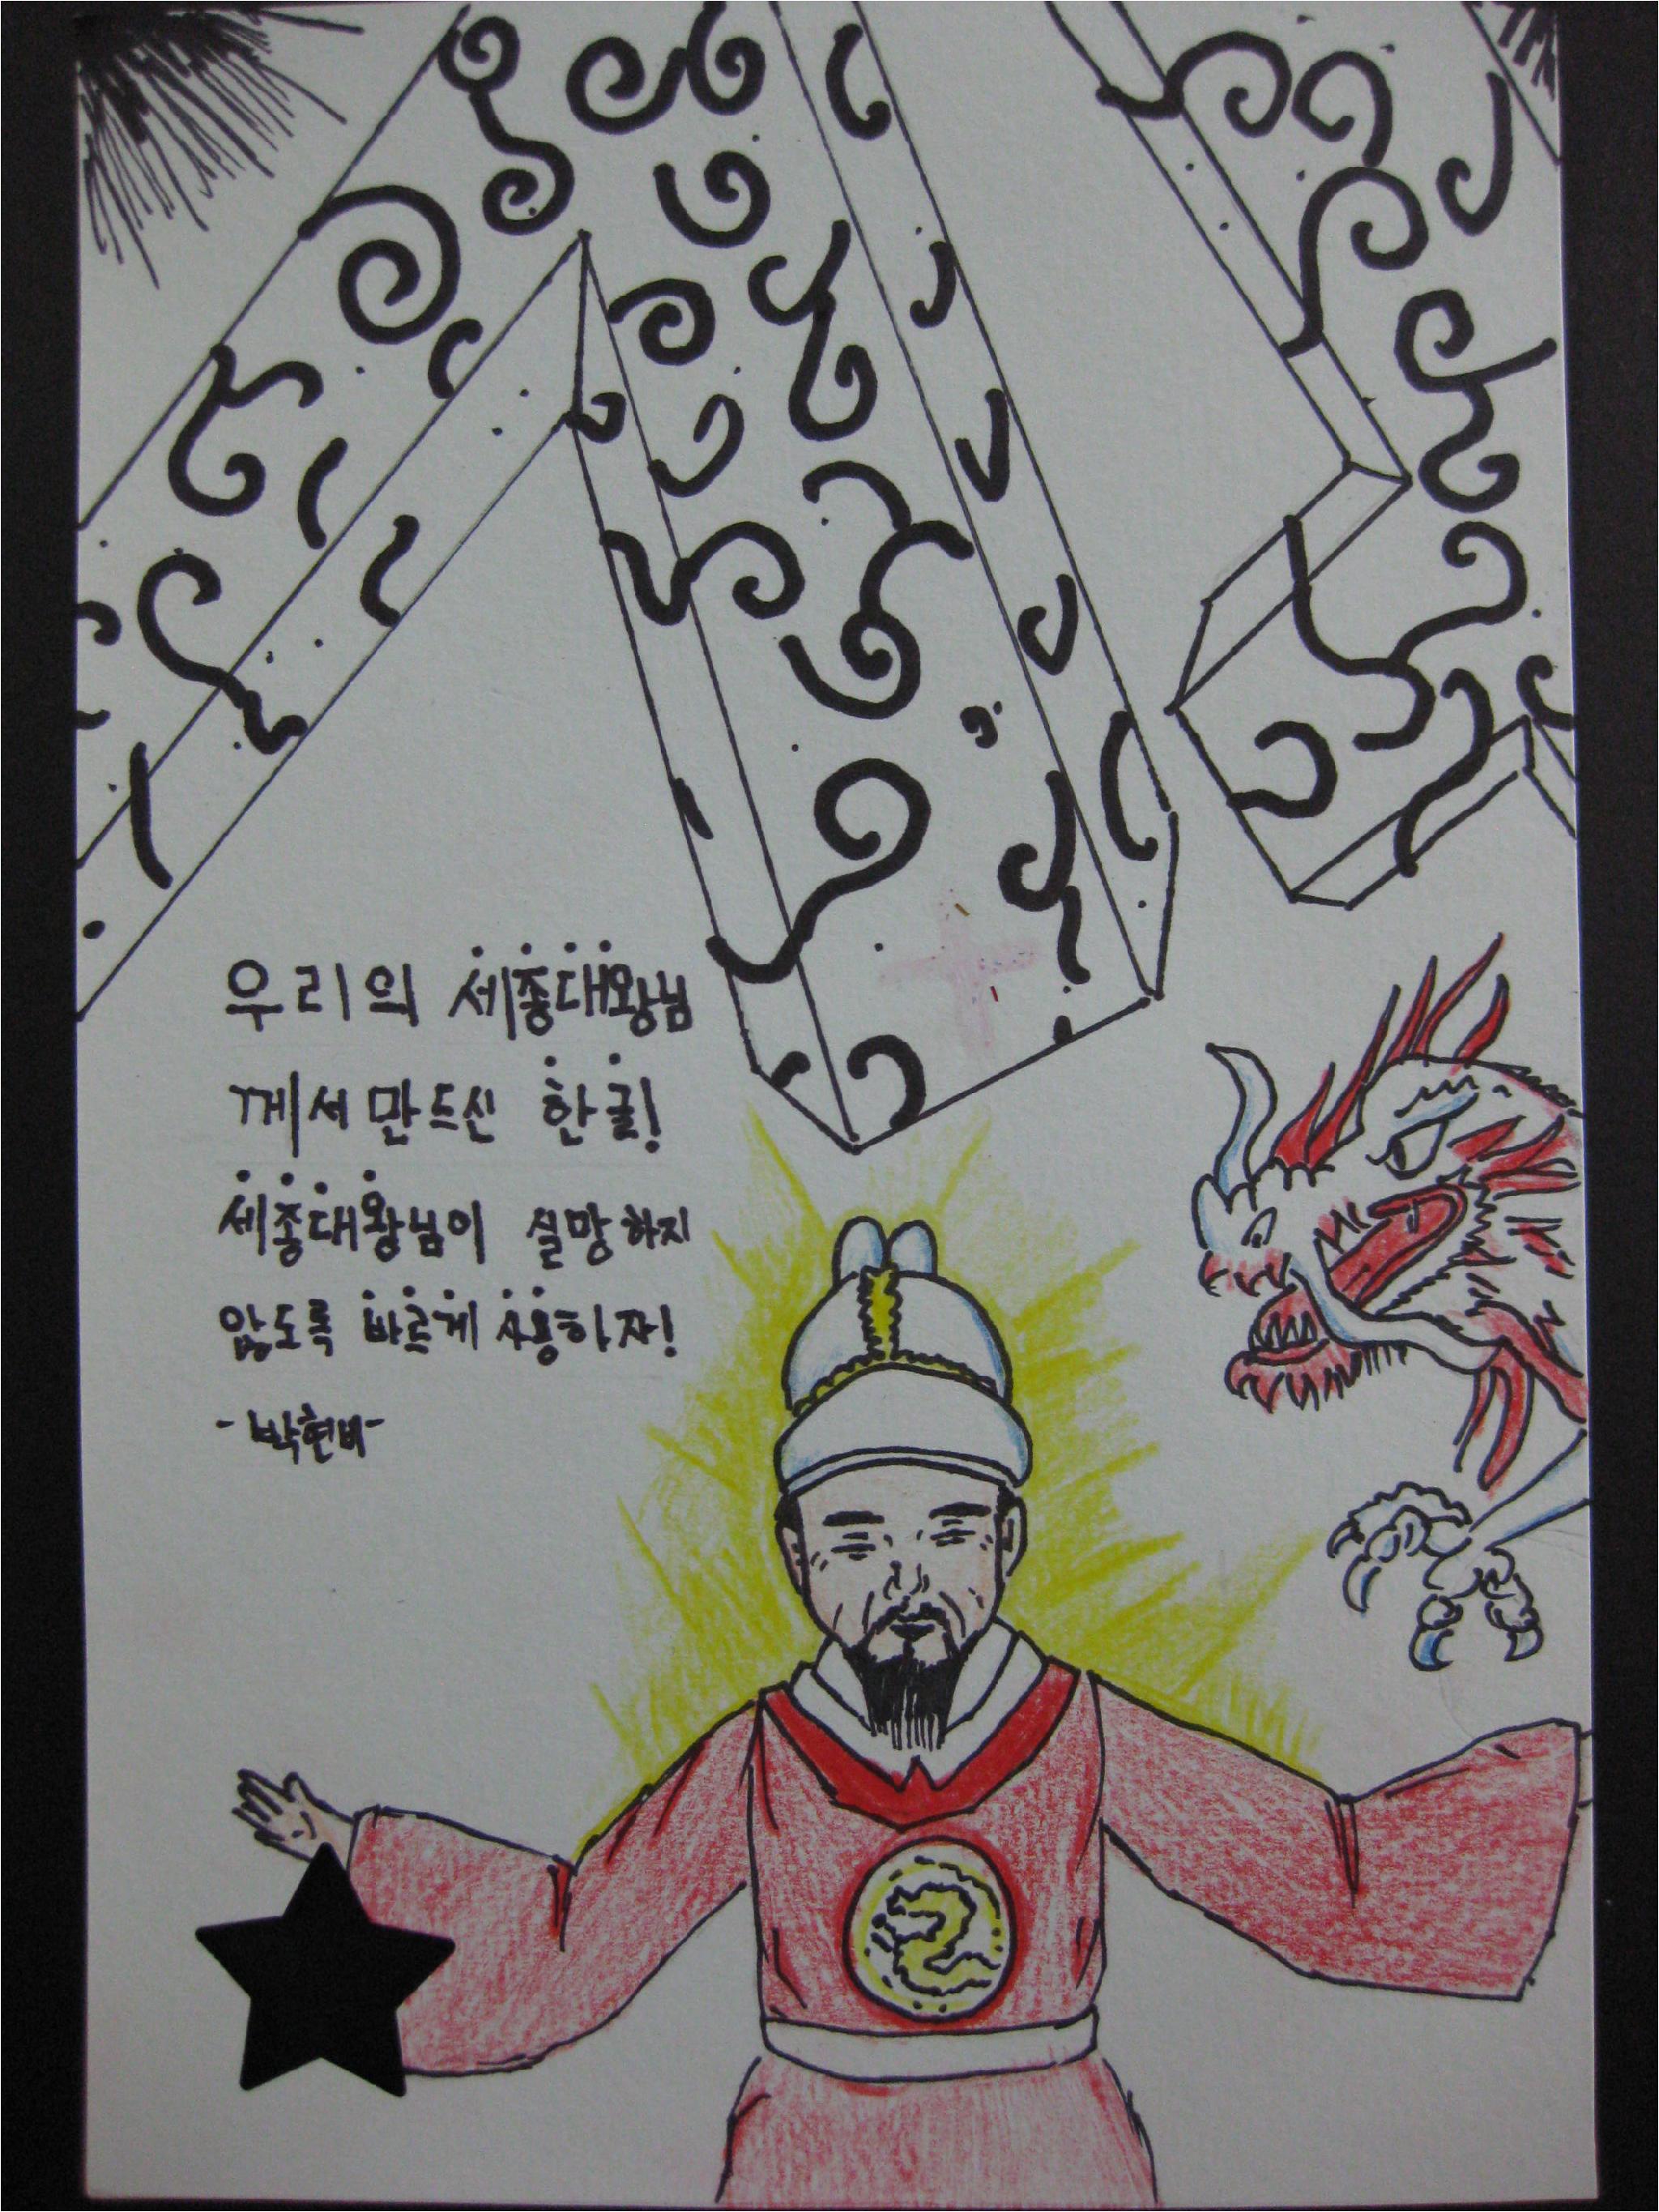 우리의 세종대왕님
께서 만드신 한글!
세종대왕님이 실망하지
않도록 바르게 사용하자!
-박현비-